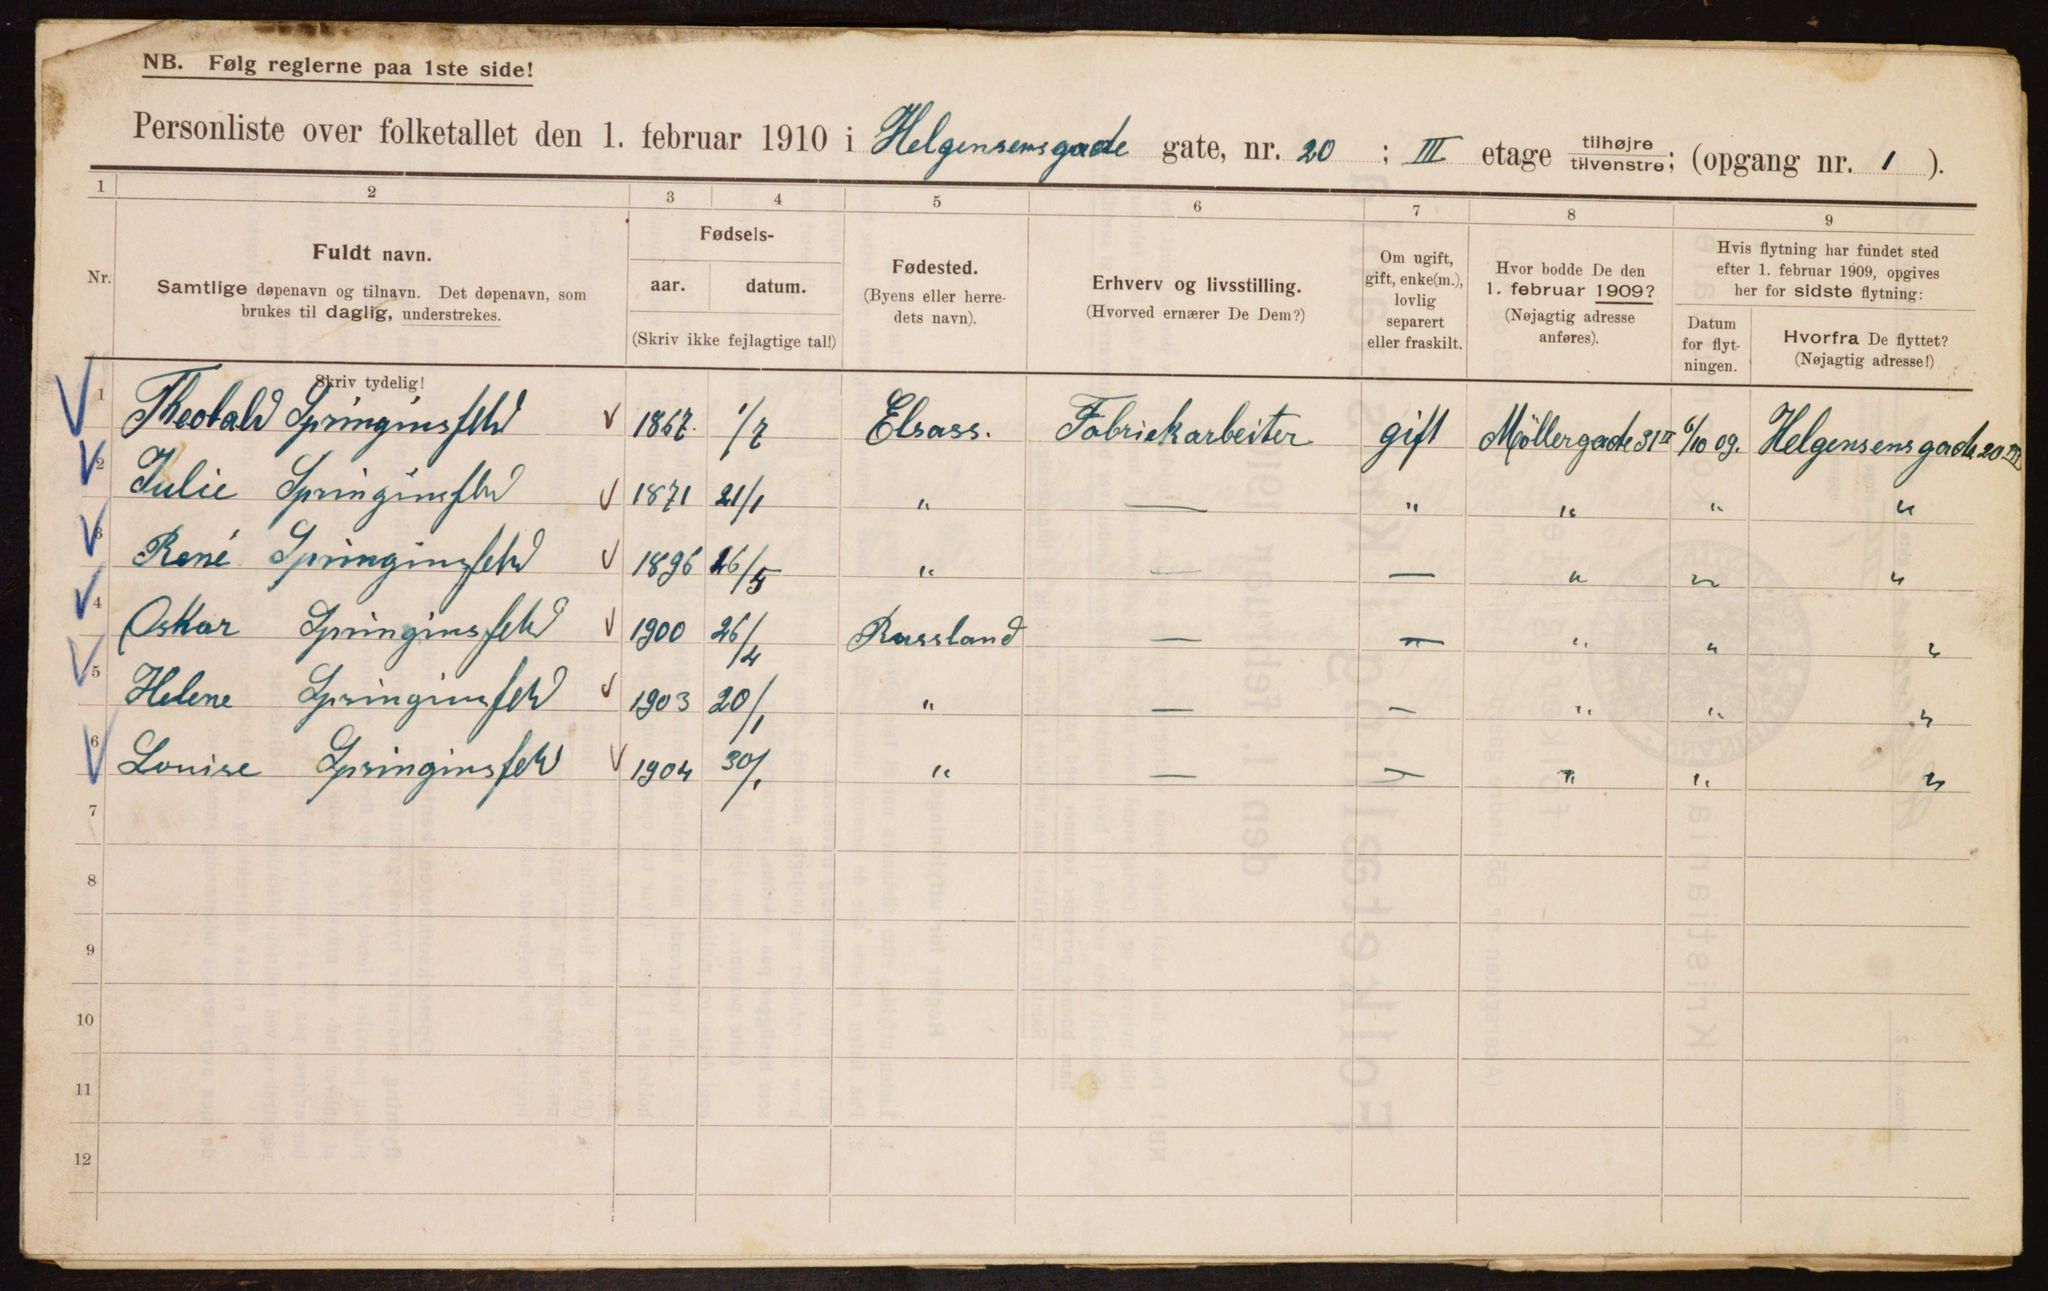 NB. Følg reglerne paa 1ste side!
Personliste over folketallet den 1. februar 1910 i Helgensensgade gate, nr. 20 ; III etage tilhøjre tilvenstre; (opgang nr. 1 ).
1 2 3 4 5 6 7 8 9
Nr.
Fuldt navn.
Samtlige døpenavn og tilnavn. Det døpenavn, som
brukes til daglig, understrekes.
Skriv tydelig!
Fødsels-
aar. datum.
(Skriv ikke fejlagtige tal!)
Fødested.
(Byens eller herre-
dets navn).
Erhverv og livsstilling.
(Hvorved ernærer De Dem?)
Om ugift,
gift, enke(m.),
lovlig
separert
eller fraskilt.
Hvor bodde De den
1. februar 1909?
(Nøjagtig adresse
anføres).
Hvis flytning har fundet sted
efter 1. februar 1909, opgives
her for sidste flytning:
Datum
for flyt-
ningen.
Hvorfra De flyttet?
(Nøjagtig adresse!)
1 Theobald Springinsfeld 1867. 1/7 Elsass. Fabriekarbeiter gift Möllergade 31 II 6/10 09. Helgensensgade 20 III
2 Julie Springinsfeld 1871 21/1 " — " " " "
3 René Springinsfeld 1896 26/5 " — — " " "
4 Oskar Springinsfeld 1900 26/4 Russland — — " " "
5 Helene Springinsfeld 1903 20/1 " — — " " "
6 Louise Springinsfeld 1904 30/1 " — — " " "
7
8
9
10
11
12